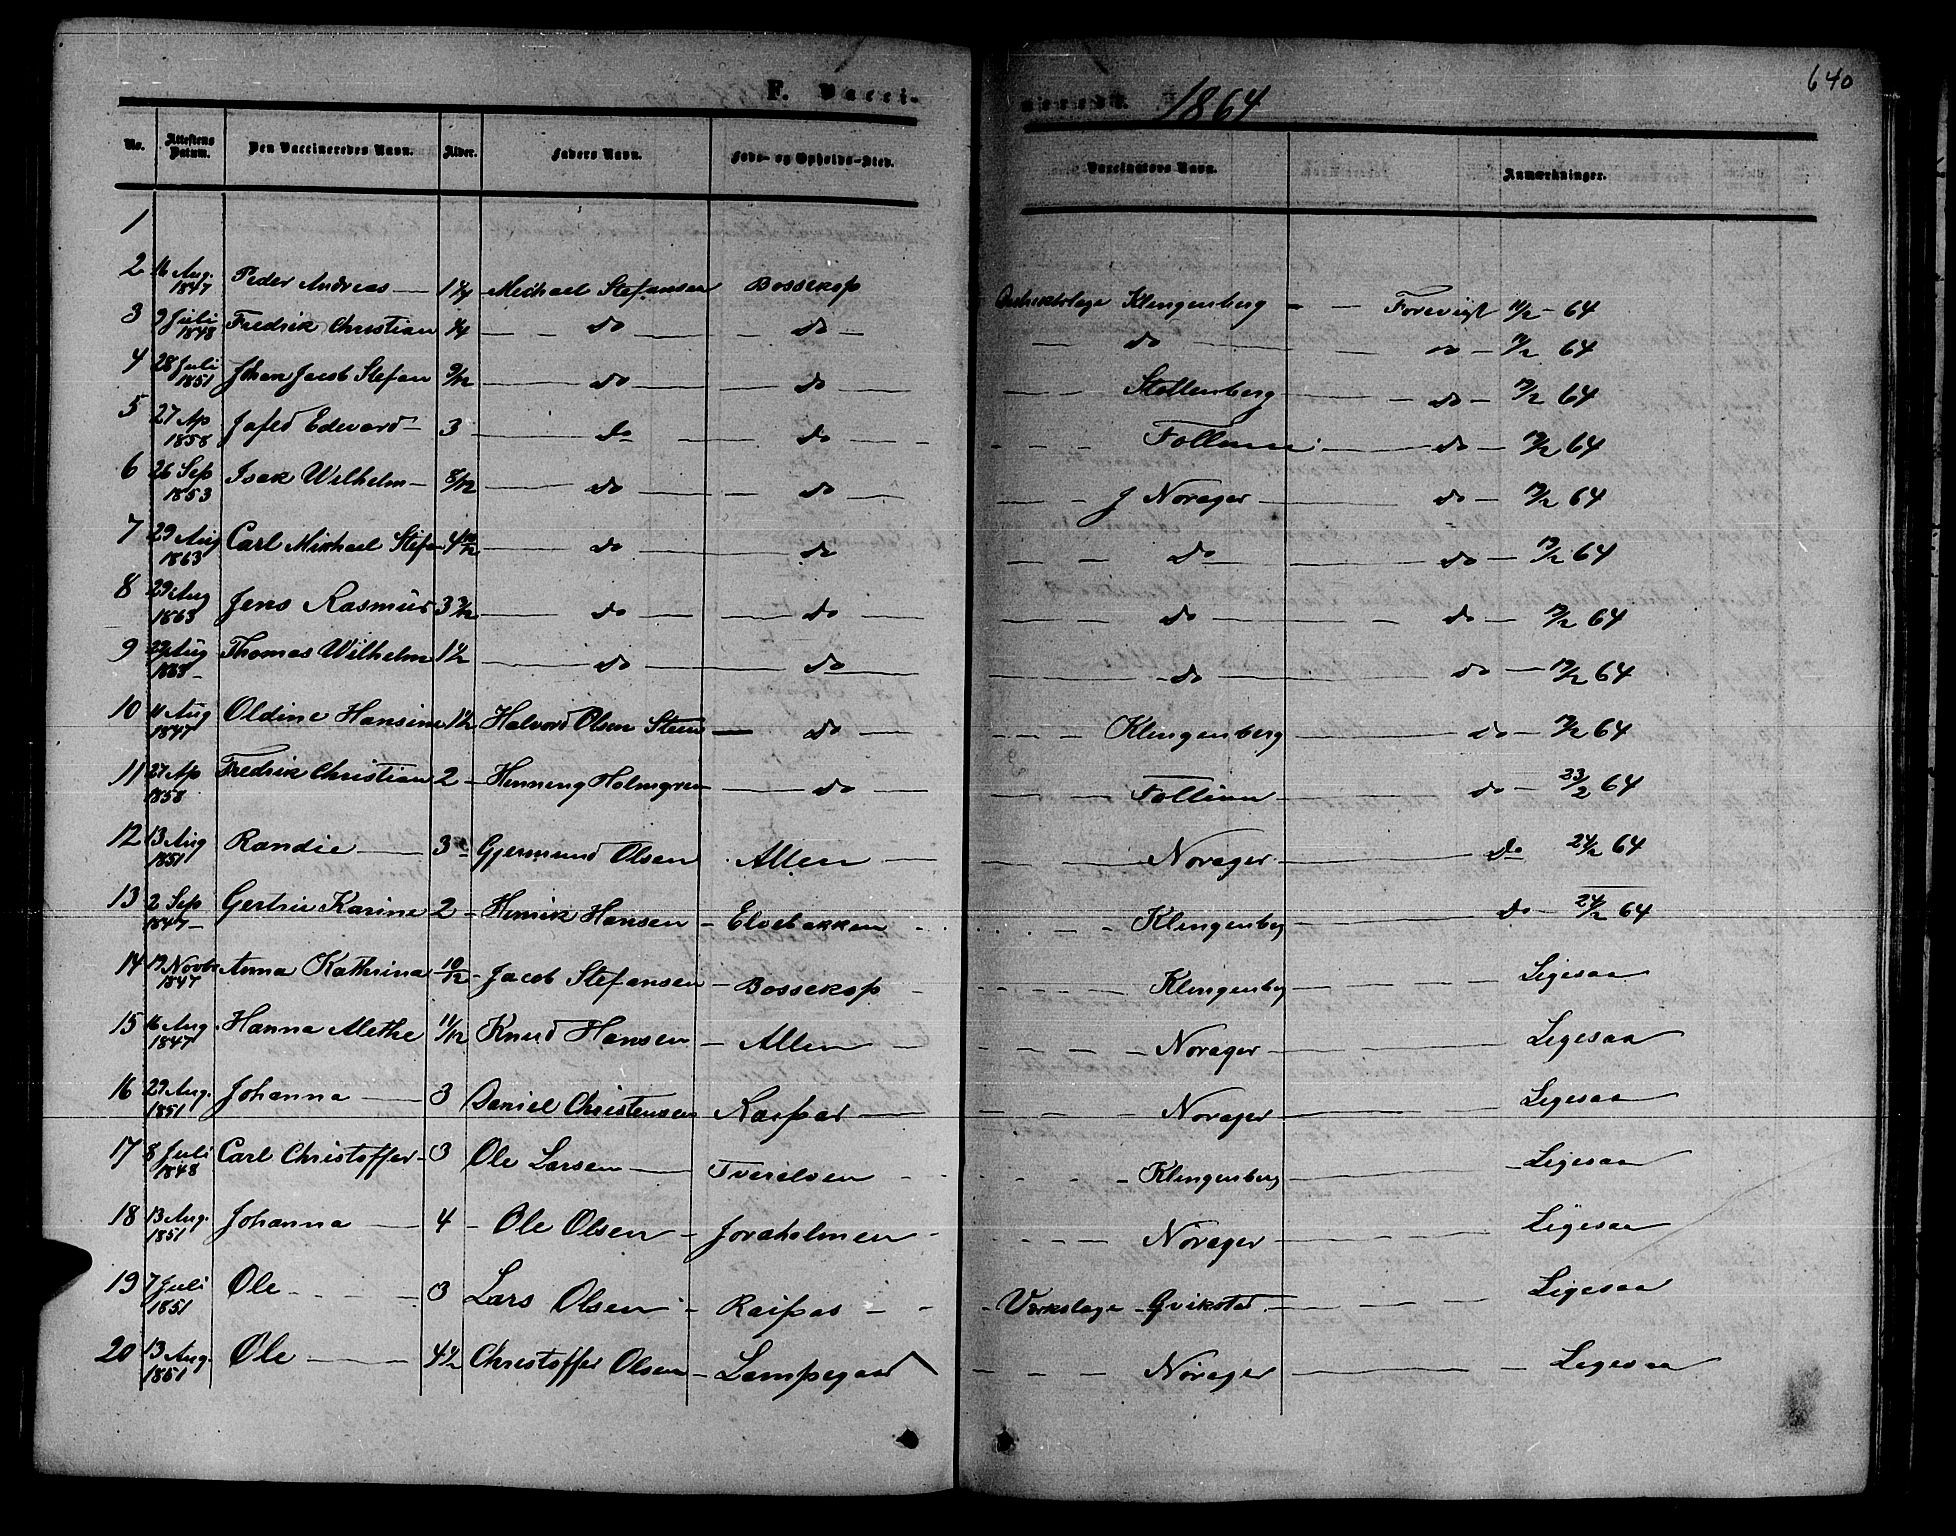 640
F. Vacci-
nerede. 1864
No. Attestens Datum. Den Vaccineredes Navn. Alder. Faders Navn. Føde- og Opholds-Sted. Vaccinators Navn. Anmærkninger.
1
2 16 Aug. 1847 Peder Andreas — Michael Stefansen Bossekop Klingenberg — Foreviist 64
3 9 Juli 1848 Fredrik Christian — do — do — do — do — 64
4 28 Juli 1851 Johan Jacob Stefan 9/12 — do — do — Stoltenberg — do — 64
5 27 Ap 1858 Jafed Edevard — 3 — do — do — — do — 64
6 26 Sep 1853 Isak Wilhelm — 8/12 — do — do — J Norager — do — 64
7 29 Aug 1863 Carl Michael Stefa 4 10/12 — do — do — do — do — 64
8 29 Aug 1863 Jens Rasmus 3 — do — do — do — do — 64
9 29 Aug 1863 Thomas Wilhelm 1 1/2 — do — do — do — do — 64
10 Aug 1847 Oldine Hansine 1 1/2 Halvord Olsen Steen — do — Klingenberg — do — 64
11 27 Ap 1858 Fredrik Christian 2 — Henning Holmgren — do — — do — 23/2 64
12 13 Aug 1851 Randie — 3 — Gjermund Olsen Alten — Norager — do 24/2 64
13 2 Sep 1847 — Gertrue Karine 2 — Henrik Hansen — Elvebakken — Klingenberg — do — 24/2 64
14 17 Novbr 1847 Anna Kathrina 10/12 — Jacob Stefansen — Bossekop — Klingenberg — Ligesaa
15 16 Aug. 1847 Hanna Methe 11/12 Knud Hansen — Alten — Norager — Ligesaa
16 29 Aug. 1851 Johanna — 3 Daniel Christensen Raipas — Norager — Ligesaa
17 8 Juli 1848 Carl Christoffer — 3 Ole Larsen — Tverelven — Klingenberg — Ligesaa
18 13 Aug. 1851 Johanna — 4 — Ole Olsen — Joraholmen — Norager — Ligesaa
19 7 Juli 1851 Ole — 3 Lars Olsen — Raipas — Værkslæge — Qvikstad — Ligesaa
20 13 Aug. 1851 Ole — 4 1/2 Christoffer Olsen — Lampegaard — Norager — Ligesaa